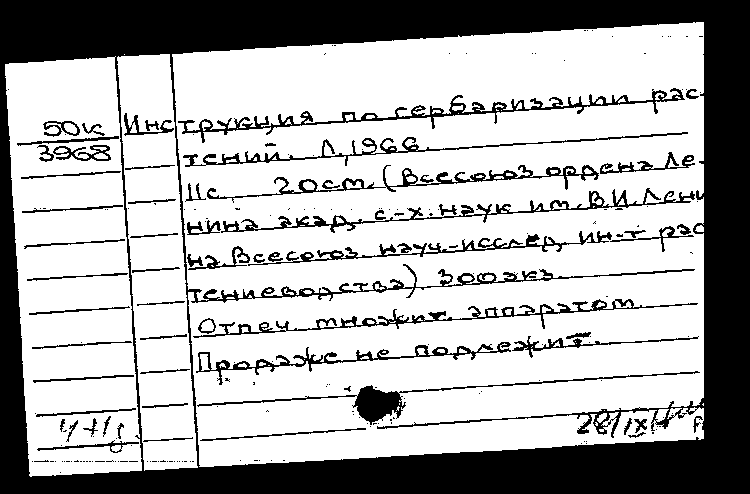 50к Инструкция по гербаризации рас-
3968 тений. Л., 1966.
11с. 20см. (Всесоюз ордена Ле-
нина акад. с.-х. наук им. В.И. Лени
на. Всесоюз. науч.-исслед. ин-т рас
тениеводства). 300экз.
Отпеч. множит. аппаратом.
Продаже не подлежит.
28/IX